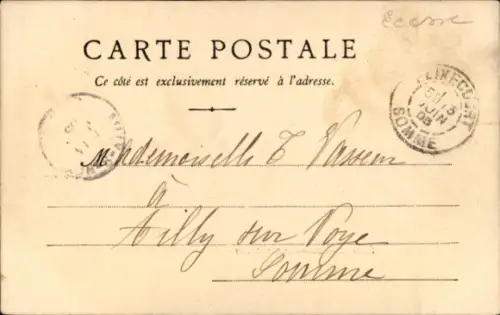 Ecosse
CARTE POSTALE
Ce côté est exclusivement réservé à l'adresse.
FLIXECOURT
5
JUIN
05
SOMME
Mademoiselle T Vasseur
à
Ailly sur Noye
Somme